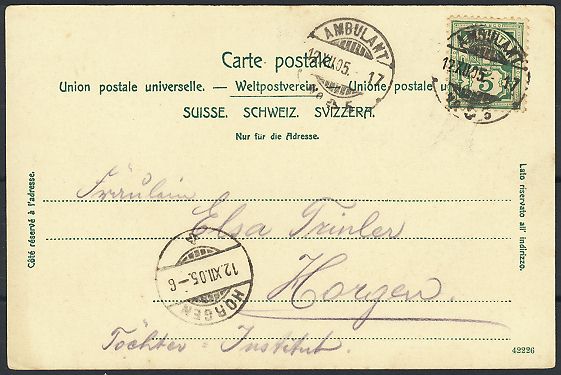 AMBULANT
12.XII.05. 17
No 5
AMBULANT
12.XII.05. 17
No 5
5
Carte postale.
Union postale universelle. — Weltpostverein. — Unione postale u
SUISSE. SCHWEIZ. SVIZZERA.
Nur für die Adresse.
Côté réservé à l'adresse.
Lato riservato all' indirizzo.
Fräulein
Elsa Trinler
Horgen.
Töchter-Institut.
12.XII.05.-6
HORGEN
42226